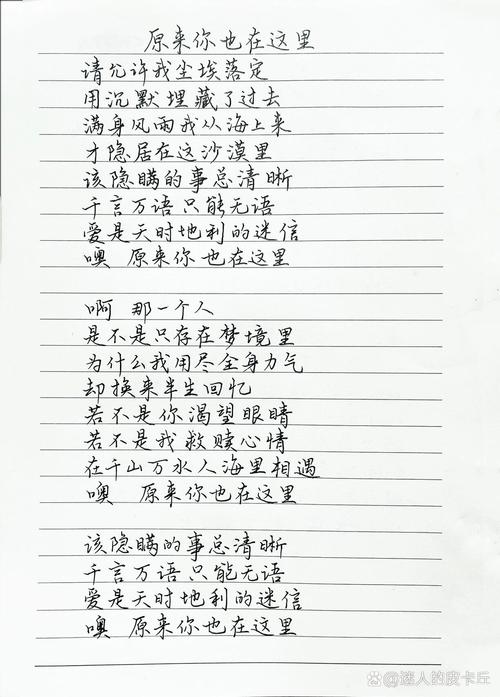 原来你也在这里
请允许我尘埃落定
用沉默埋藏了过去
满身风雨我从海上来
才隐居在这沙漠里
该隐瞒的事总清晰
千言万语只能无语
爱是天时地利的迷信
噢 原来你也在这里
啊 那一个人
是不是只存在梦境里
为什么我用尽全身力气
却换来半生回忆
若不是你渴望眼睛
若不是我救赎心情
在千山万水人海里相遇
噢 原来你也在这里
该隐瞒的事总清晰
千言万语只能无语
爱是天时地利的迷信
噢 原来你也在这里
@迷人的皮卡丘